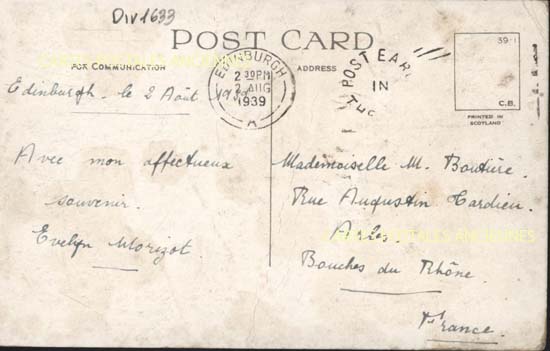 Div1633
POST CARD
FOR COMMUNICATION
ADDRESS
EDINBURGH
2 30PM
2 AUG
1939
A
POST EARLY
IN
THE
39-1
C.B.
PRINTED IN
SCOTLAND
Edinburgh. le 2 Août 1939
Avec mon affectueux
souvenir.
Evelyn Morizot.
Mademoiselle M. Boutière.
Rue Augustin Tardieu.
Arles.
Bouches du Rhône.
France.